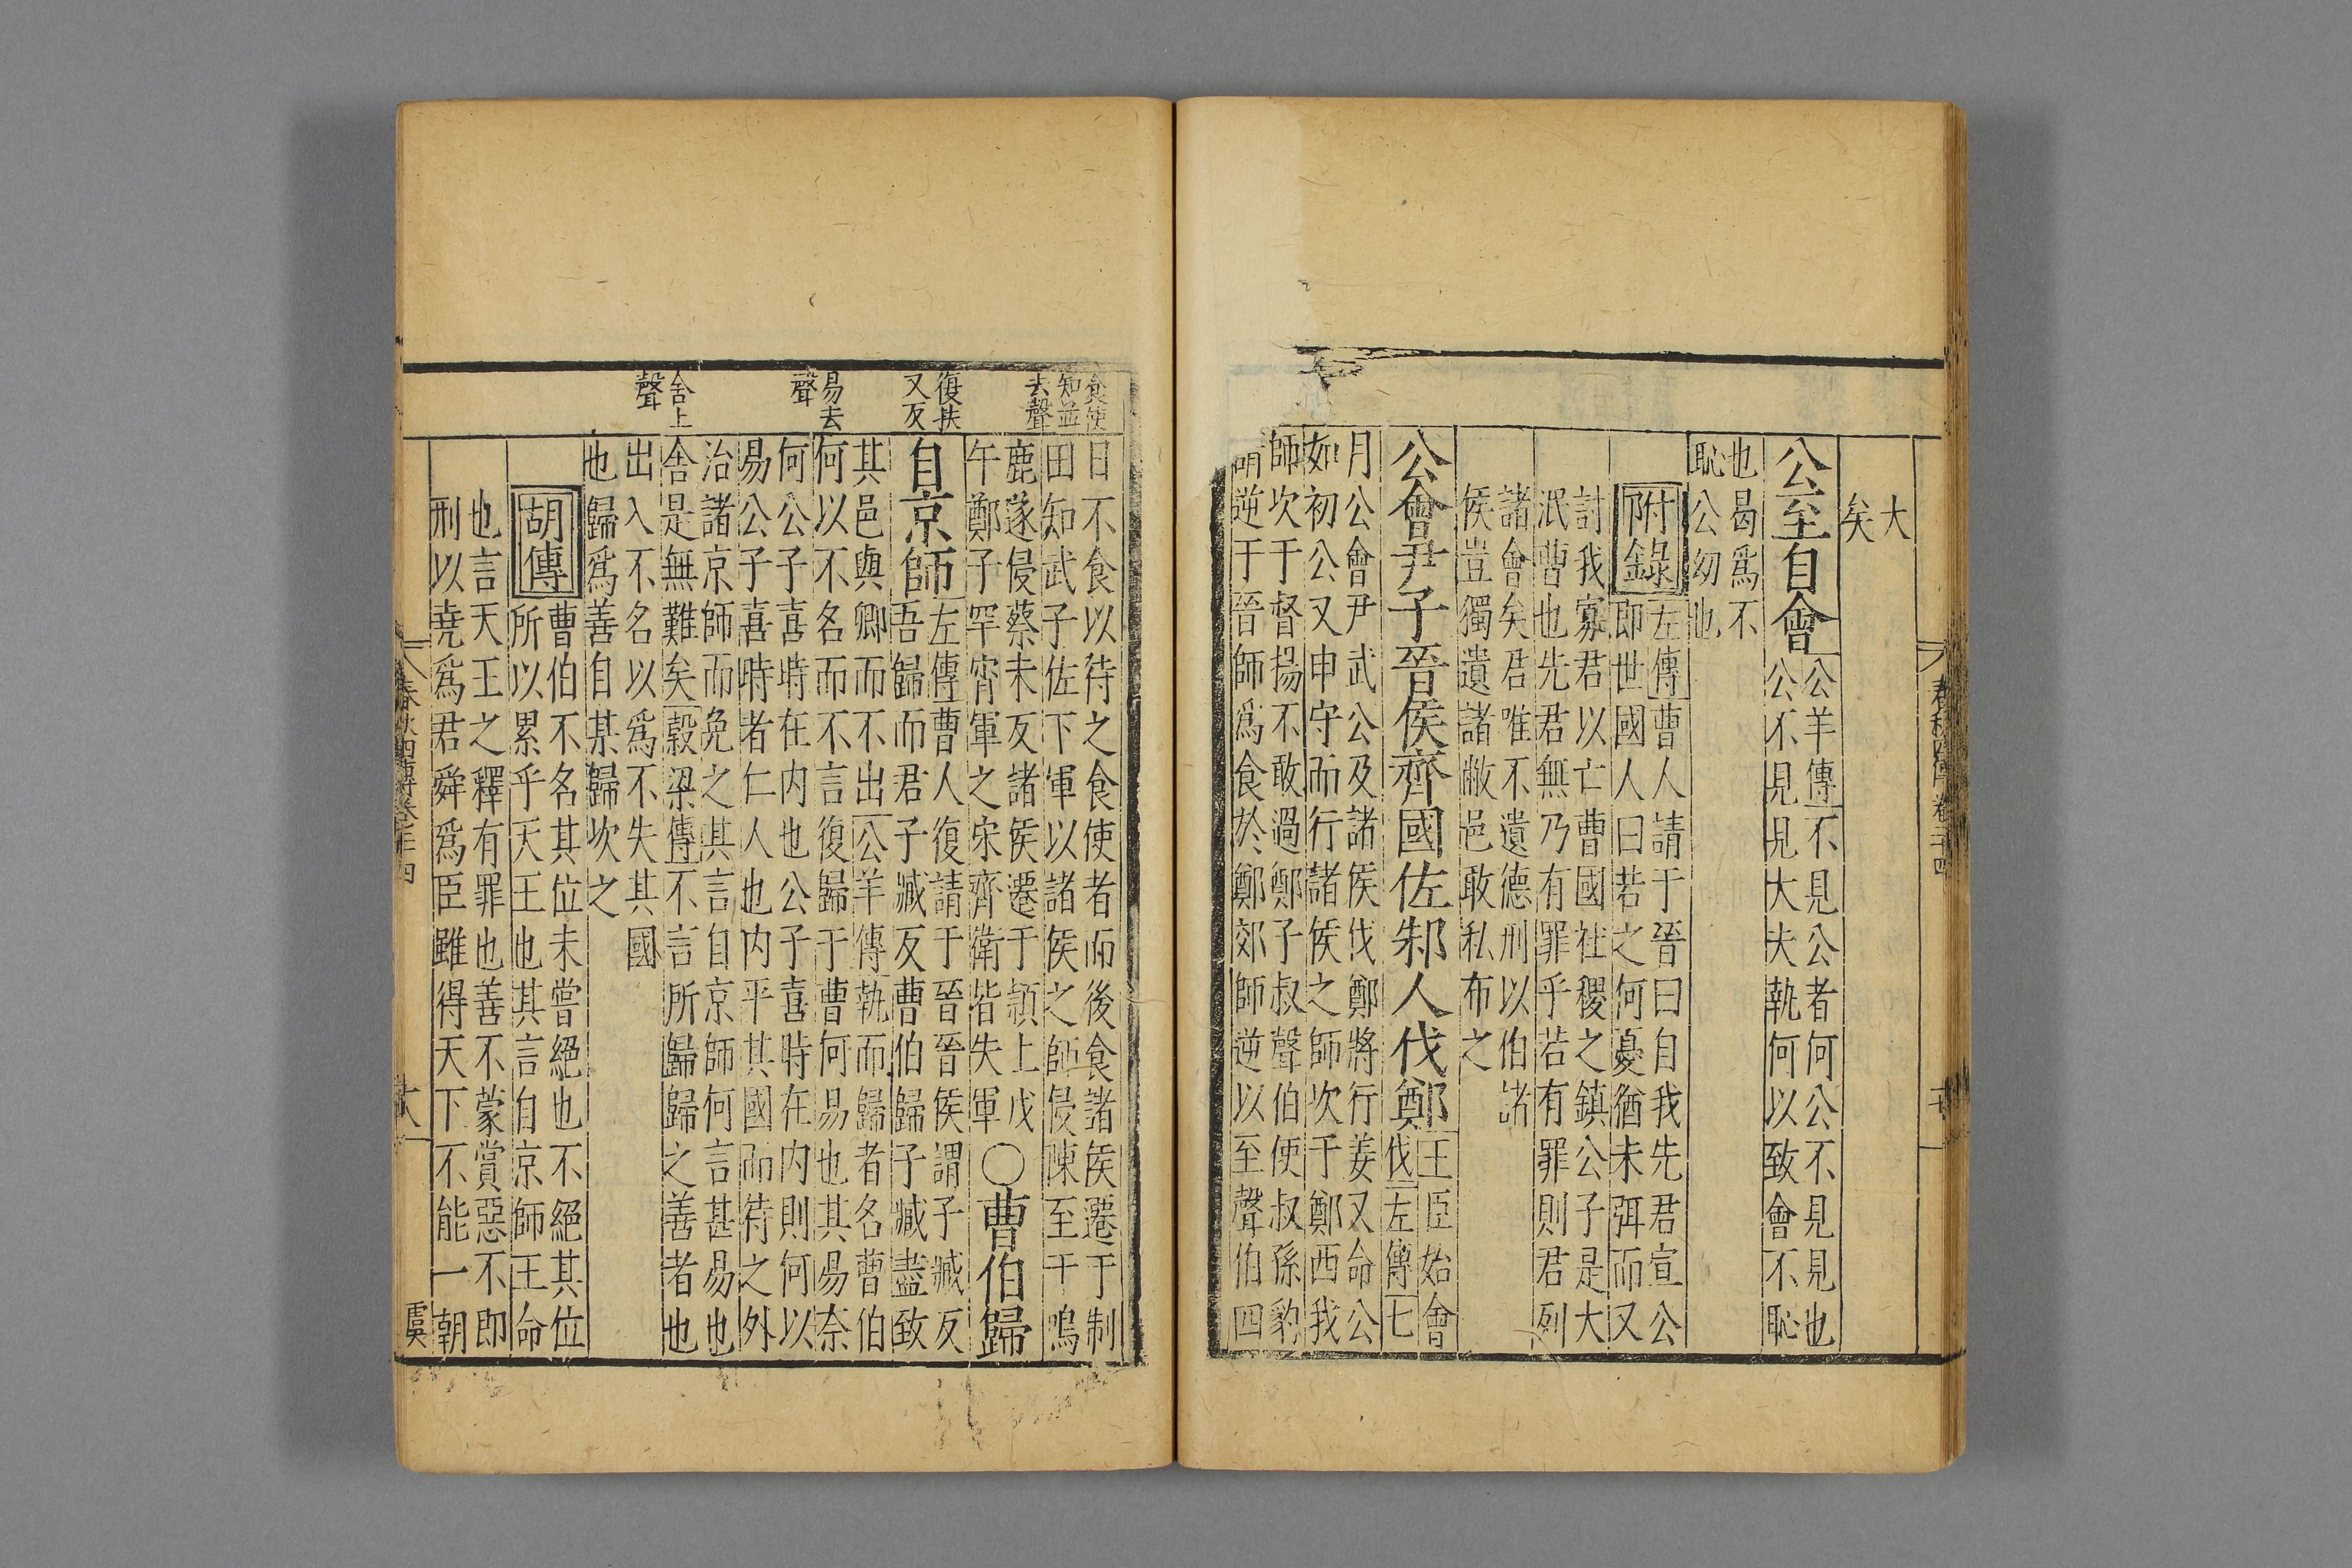 大
矣
公至自會
公羊傳不見公者何公不見見也
公不見見大夫執何以致會不恥
也曷爲不
恥公幼也
附錄
左傳曹人請于晉曰自我先君宣公
即世國人曰若之何憂猶未弭而又
討我寡君以亡曹國社稷之鎮公子是大
泯曹也先君無乃有罪乎若有罪則君列
諸會矣君唯不遺德刑以伯諸
侯豈獨遺諸敝邑敢私布之
公會尹子晉侯齊國佐邾人伐鄭
王臣始會
伐左傳七
月公會尹武公及諸侯伐鄭將行姜又命公
如初公又申守而行諸侯之師次于鄭西我
師次于督揚不敢過鄭子叔聲伯使叔孫豹
請逆于晉師爲食於鄭郊師逆以至聲伯四
食使
知並
去聲
復扶
又反
易去
聲
舍上
聲
日不食以待之食使者而後食諸侯遷于制
田知武子佐下軍以諸侯之師侵陳至于鳴
鹿遂侵蔡未反諸侯遷于潁上戊
午鄭子罕宵軍之宋齊衛皆失軍
○曹伯歸
自京師
左傳曹人復請于晉晉侯謂子臧反
吾歸而君子臧反曹伯歸子臧盡致
其邑與卿而不出公羊傳執而歸者名曹伯
何以不名而不言復歸于曹何易也其易奈
何公子喜時在内也公子喜時在内則何以
易公子喜時者仁人也内平其國而待之外
治諸京師而免之其言自京師何言甚易也
舍是無難矣穀梁傳不言所歸歸之善者也
出入不名以爲不失其國
也歸爲善自某歸次之
胡傳
曹伯不名其位未嘗絕也不絕其位
所以累乎天王也其言自京師王命
也言天王之釋有罪也善不蒙賞惡不即
刑以堯爲君舜爲臣雖得天下不能一朝
春秋四傳卷二十四
十八
虞